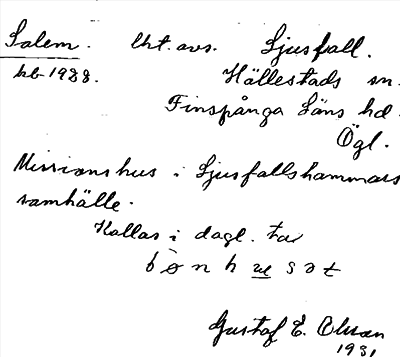 Salem. lht. avs. Ljusfall.
hb 1988. Hällestads sn.
Finspånga Läns hd.
Ögl.
Missionshus i Ljusfallshammars
samhälle.
Kallas i dagl. tal
Gustaf E. Olsson
1931